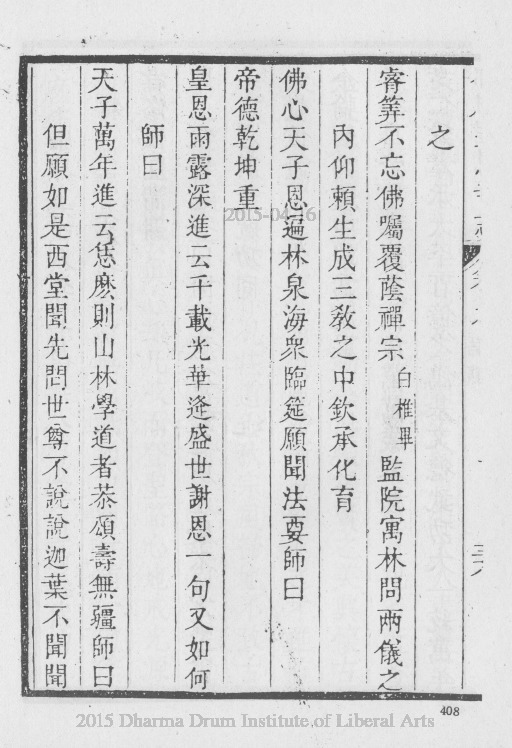 之
睿筭不忘佛囑覆蔭禪宗白椎畢監院寓林問兩儀之
內仰賴生成三教之中欽承化育
佛心天子恩遍林泉海衆臨筵願聞法要師曰
帝德乾坤重
皇恩雨露深進云千載光華逢盛世謝恩一句又如何
師曰
天子萬年進云恁麽則山林學道者恭頌壽無疆師曰
但願如是西堂聞先問世尊不說說迦葉不聞聞
408
2015-04-16
2015 Dharma Drum Institute of Liberal Arts